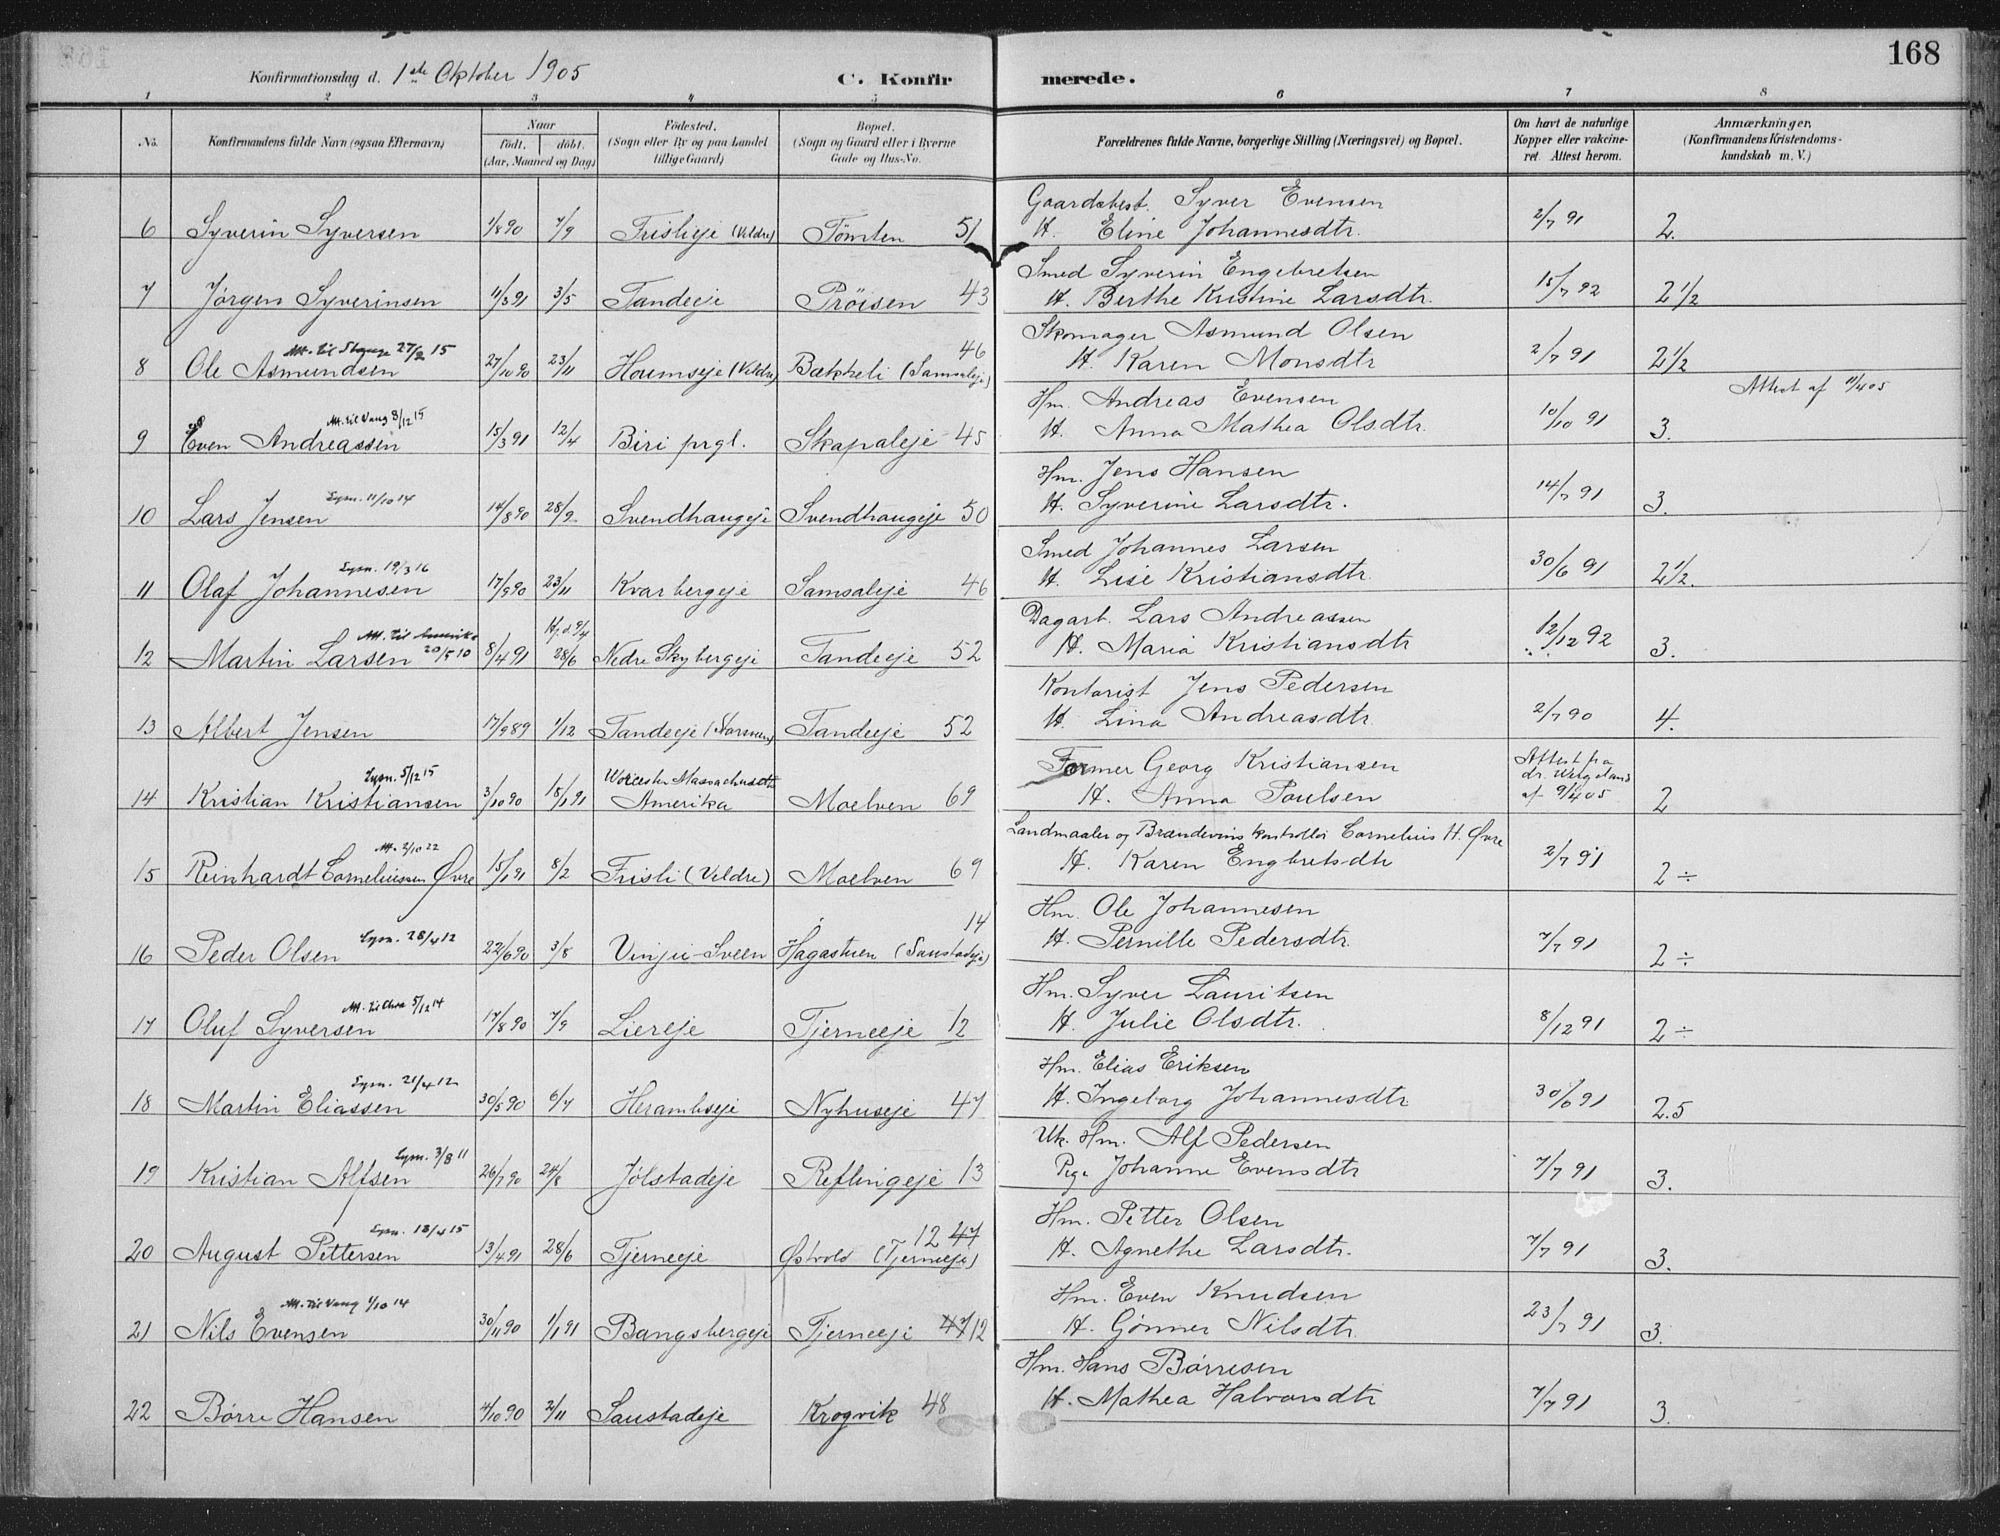 168
Konfirmationsdag d. 1ste Oktober 1905 C. Konfir merede.
1 2 3 4 5 6 7 8
No. Konfirmandens fulde Navn (ogsaa Efternavn) Naar født. døbt. (Aar, Maaned og Dag) Fødested. (Sogn eller By og paa Landet tillige Gaard) Bopæl. (Sogn og Gaard eller i Byerne Gade og Hus-No. Forældrenes fulde Navne, borgerlige Stilling (Næringsvei) og Bopæl. Om havt de naturlige Kopper eller vakcineret. Attest herom. Anmærkninger. (Konfirmandens Kristendomskundskab m. V.)
Gaardsbest. Syver Evensen
6 Syverin Syversen 1/8 90 7/9 Frislieje (Veldre) Tømten 51 H. Eline Johannesdtr. 2/7 91 2.
Smed Syverin Engebretsen
7 Jørgen Syverinsen 11/3 91 3/5 Tandeeje Prøisen 43 H. Berthe Kristine Larsdtr. 15/7 92 2 1/2
Att. til Stange 27/2 15 46 Skomager Asmund Olsen
8 Ole Asmundsen 27/10 90 23/11 Houmseje (Veldre) Bækkeli (Samsaleje) H. Karen Monsdtr 2/7 91 2 1/2
Att. til Vang 8/12 15 Hm. Andreas Evensen Attest af 11/4 05
9 Even Andreassen 15/3 91 12/4 Biri prgl. Skapaleje 45 H. Anna Mathea Olsdtr. 10/10 91 3.
Lysn. 11/10 14 Hm. Jens Hansen
10 Lars Jensen 14/8 90 28/9 Svendhaugeje Svendhaugeje 50 H. Syverine Larsdtr. 14/7 91 3.
Lysn. 19/3 16 Smed Johannes Larsen
11 Olaf Johannesen 17/9 90 23/11 Kvarbergeje Samsaleje 46 H. Lise Kristiansdtr. 30/6 91 2 1/2.
Att. til Amerika 20/5 10 Hj.d. 9/4 Dagarb. Lars Andreassen
12 Martin Larsen 8/4 91 28/6 Nedre Skybergeje Tandeeje 52 H. Maria Kristiansdtr 12/12 92 3.
Kontorist Jens Pedersen
13 Albert Jensen 17/9 89 1/12 Tandeeje Tandeeje 52 H. Lina Andreasdtr. 2/7 90 4.
Lysn. 5/12 15 Worcester Massachusetts Former Georg Kristiansen Attest fra dr. Wergeland af 9/4 05
14 Kristian Kristiansen 3/10 90 18/1 91 Amerika Moelven 69 H. Anna Poulsen 2
Att. 2/10 22 Landmaaler og Brændevinskontrollør Cornelius H. Øvre
15 Reinhardt Corneliussen Øvre 15/1 91 8/2 Frisli (Veldre) Moelven 69 H. Karen Engbretsdtr 2/7 91 2 ÷
Lysn. 28/4 12 14 Hm. Ole Johannesen
16 Peder Olsen 22/6 90 3/8 Vinju-Sveen Hagastuen (Saustadeje) H. Pernille Pedersdtr. 7/7 91 2 ÷
5/12 14 Hm. Syver Lauritsen
17 Oluf Syversen 17/8 90 7/9 Liereje Tjerneeje 12 H. Julie Olsdtr. 8/12 91 2 ÷
Lysn. 21/4 12 Hm. Elias Eriksen
18 Martin Eliassen 30/5 90 6/7 Herambseje Nyhuseje 47 H. Ingeborg Johannesdtr 30/6 91 2.5
Lysn. 3/8 11 Uk. Hm. Alf Pedersen
19 Kristian Alfsen 26/7 90 24/8 Jølstadeje Reflingeje 13 Pige Johanne Evensdtr 7/7 91 3.
Lysn. 18/4 15 12 47 Hm. Petter Olsen
20 August Pettersen 13/4 91 28/6 Tjerneeje Østvold (Tjerneeje) H. Agnethe Larsdtr. 7/7 91 3.
Att. til Vang 1/10 14 Hm. Even Knudsen
21 Nils Evensen 30/11 90 1/1 91 Bangsbergeje Tjerneeje 47 12 H. Gønner Nilsdtr. 23/7 91 3.
Hm. Hans Børresen
22 Børre Hansen 4/10 90 2/11 Saustadeje Krogvik 48 H. Mathea Halvorsdtr 7/7 91 3.